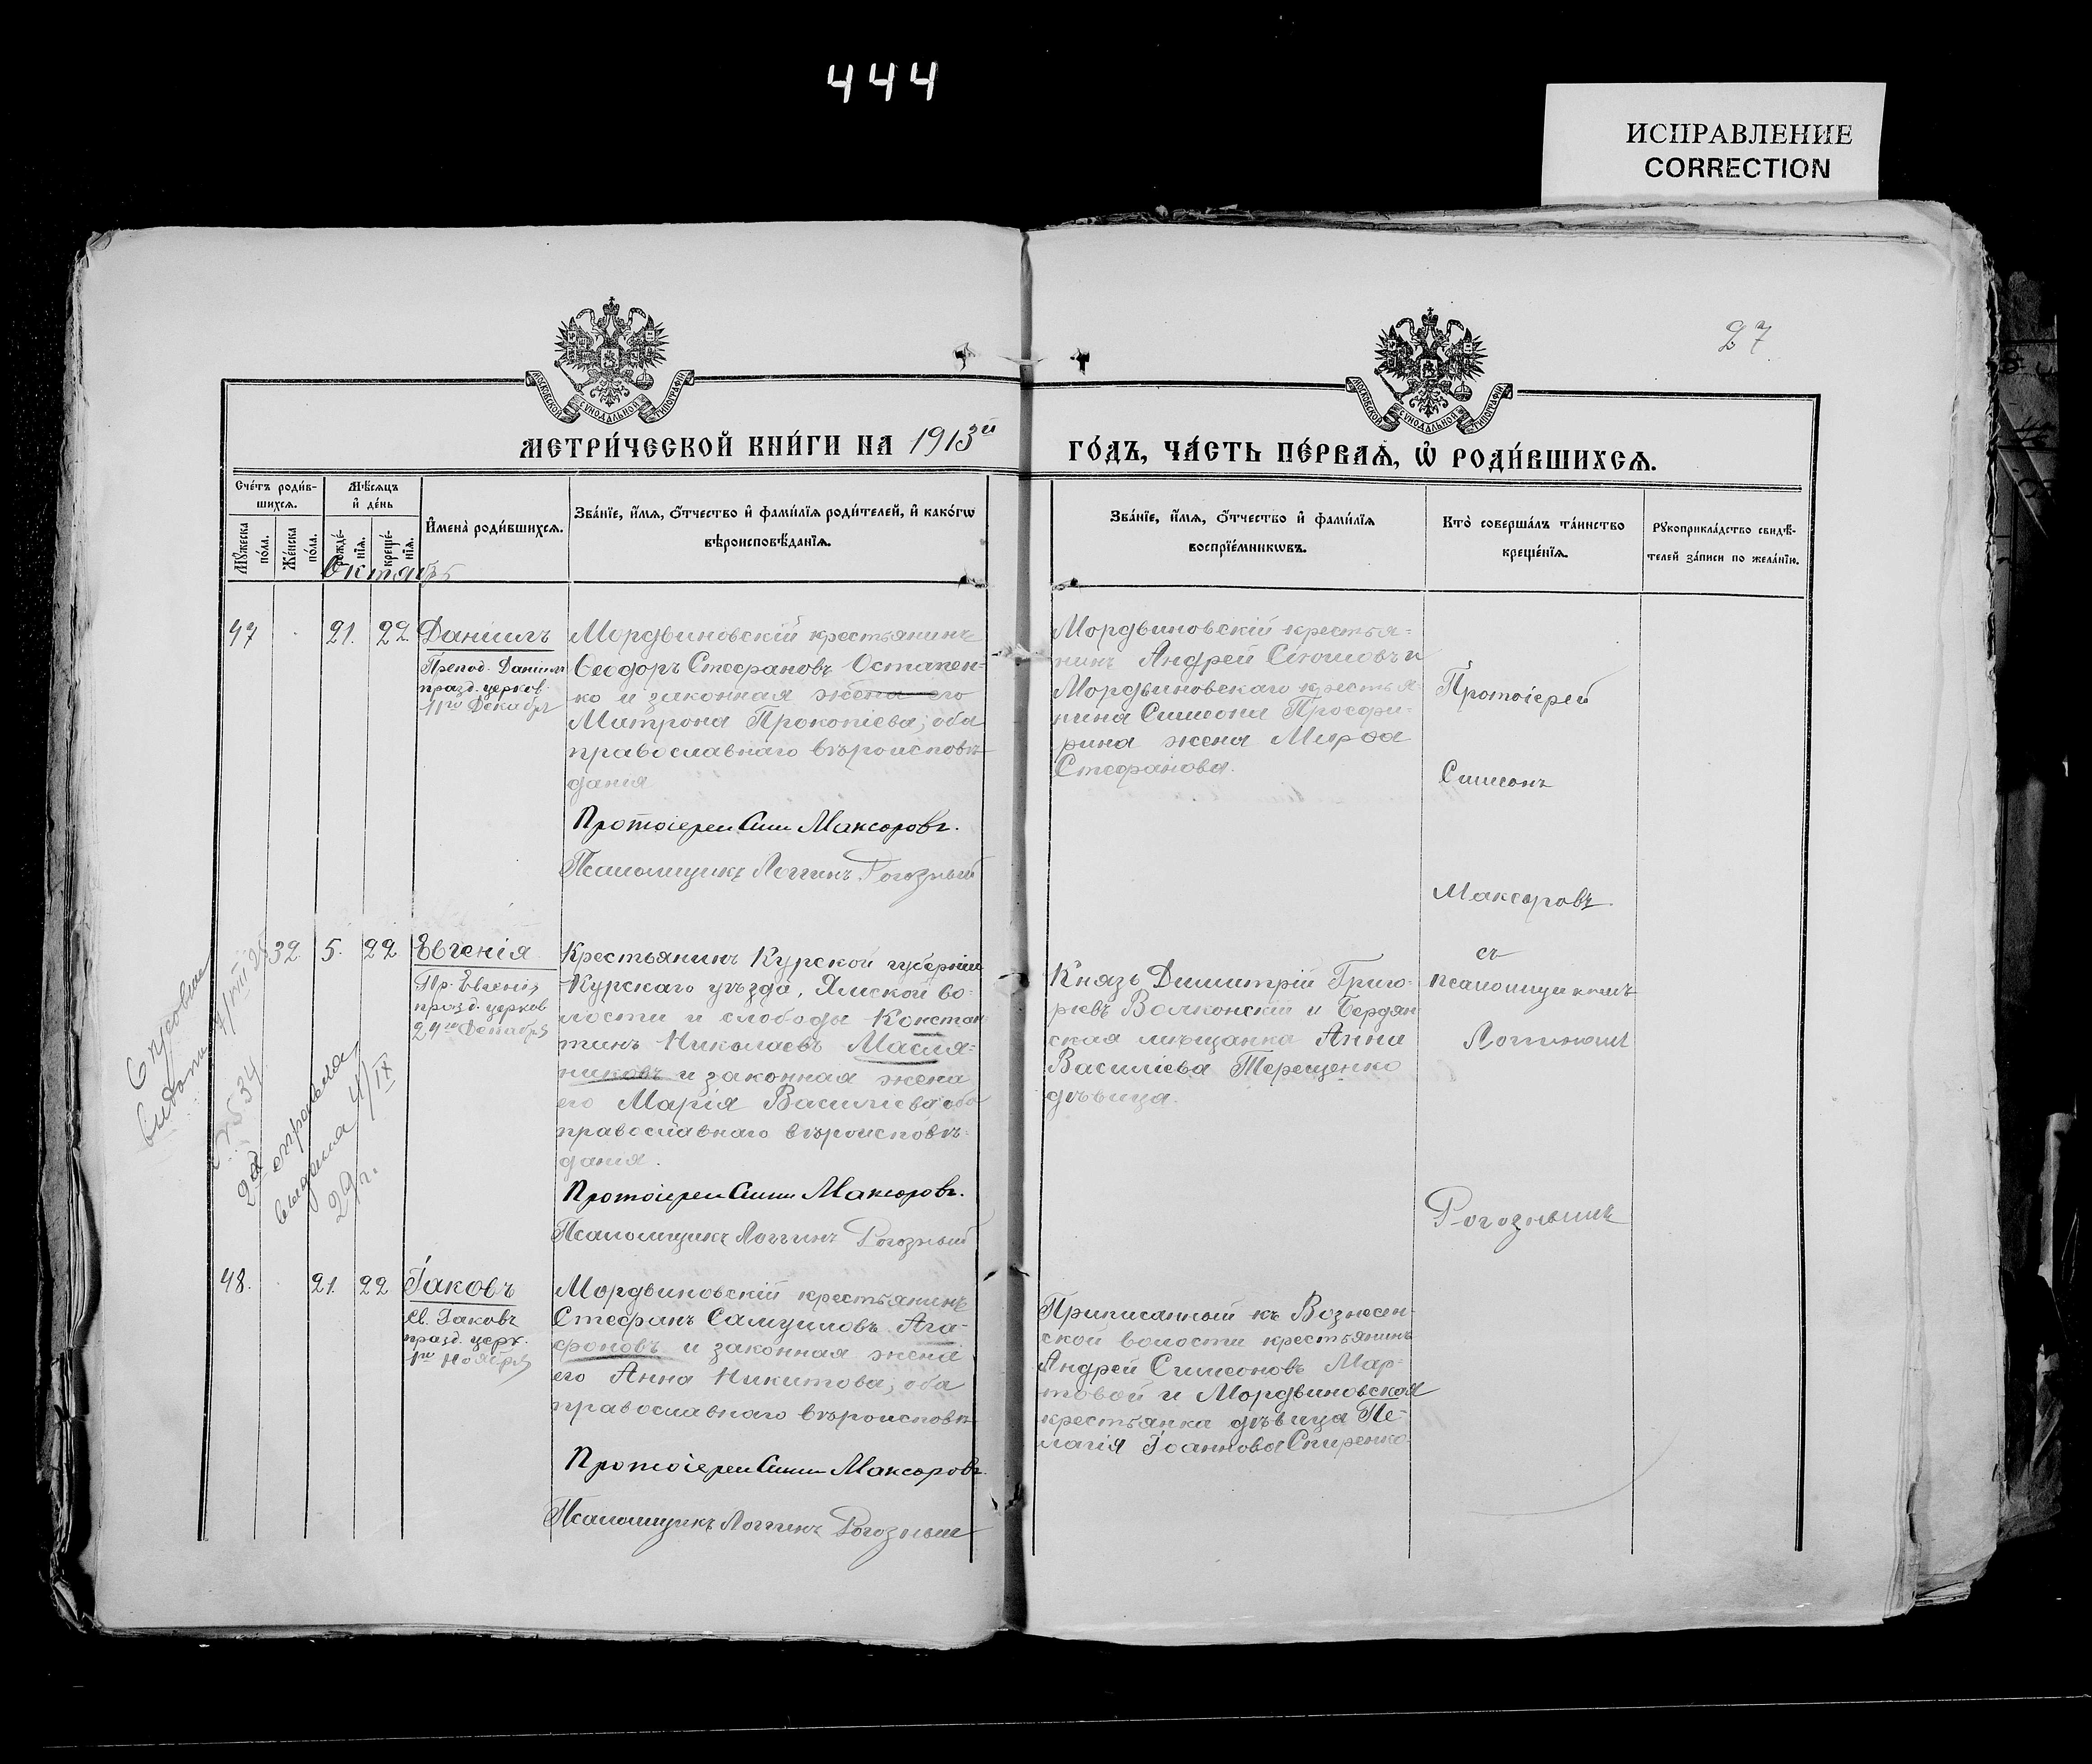 444
ИСПРАВЛЕНИЕ
CORRECTION
27
МОСКОВСКОЙ СѴНОДАЛЬНОЙ ТИПОГРАФІИ
МОСКОВСКОЙ СѴНОДАЛЬНОЙ ТИПОГРАФІИ
МЕТРИ́ЧЕСКОЙ КНИ́ГИ НА 1913й
ГО́ДЪ, ЧА́СТЬ ПЕ́РВАѦ, Ѡ҆ РОДИ́ВШИХСѦ.
Сче́тъ роди́в-
шихсѧ.
Мꙋ́жеска по́ла.
Же́нска по́ла.
Мѣ́сѧцъ
и҆ де́нь
рожде́-
нїѧ.
креще́-
нїѧ.
И҆мена̀ роди́вшихсѧ.
Зва́нїе, и҆́мѧ, ѻ҆́тчество и҆ фами́лїѧ роди́телей, и҆ како́гѡ
вѣроисповѣ́данїѧ.
Зва́нїе, и҆́мѧ, ѻ҆́тчество и҆ фами́лїѧ
воспрїе́мникѡвъ.
Кто̀ соверша́лъ та́инство
креще́нїѧ.
Рꙋкоприкла́дство свидѣ́-
телей за́писи по жела́нїю.
Октябрь
47 21. 22
Даніилъ
Препод. Даніил
празд. церков.
11го Декабр
Мордвиновскій крестьянинъ
Ѳеодоръ Стефановъ Остапен-
ко и законная жена его
Матрона Прокопіева; оба
православнаго вѣроисповѣ-
данія
Протоіерей Сим Максоровъ.
Псаломщикъ Логгинъ Рогозный
Мордвиновскій крестья-
нинъ Андрей и
Мордвиновскаго крестья-
нина Симеона
жена Марѳа
Стефанова.
Протоіерей
Симеонъ
Максоровъ.
съ
псаломщикомъ
Логгиномъ
Рогознымъ
32. 5. 22
Евгенія
Пр. Евгенія
празд. церков
24го Декабря
Крестьянинъ Курской губерніи
Курскаго уѣзда, Ямской во-
лости и слободы Констан-
тинъ Николаевъ Масля-
никовъ и законная жена
его Марія Василіева оба
православнаго вѣроисповѣ-
данія.
Протоіерей Сим Максоровъ.
Псаломщикъ Логгинъ Рогозный
Князь Димитрій Григо-
ріевъ Волконскій и Бердян
ская мѣщанка Анна
Василіева Терещенко
дѣвица.
№ 534
2я
выдана 4/IX
29 г.
48. 21. 22
Іаковъ
Св. Іаковъ
празд. церк.
1го Ноября
Мордвиновскій крестьянинъ
Стефанъ Самуиловъ Ага-
фоновъ и законная жена
его Анна Никитова; оба
православнаго вѣроисповѣ-
Протоіерей Сим Максоровъ.
Псаломщикъ Логгинъ Рогозный
Приписанный къ Вознесен-
ской волости крестьянинъ
Андрей Симеоновъ Мар-
товой и Мордвиновская
крестьянка дѣвица Пе-
лагія Іоаннова Спиренко